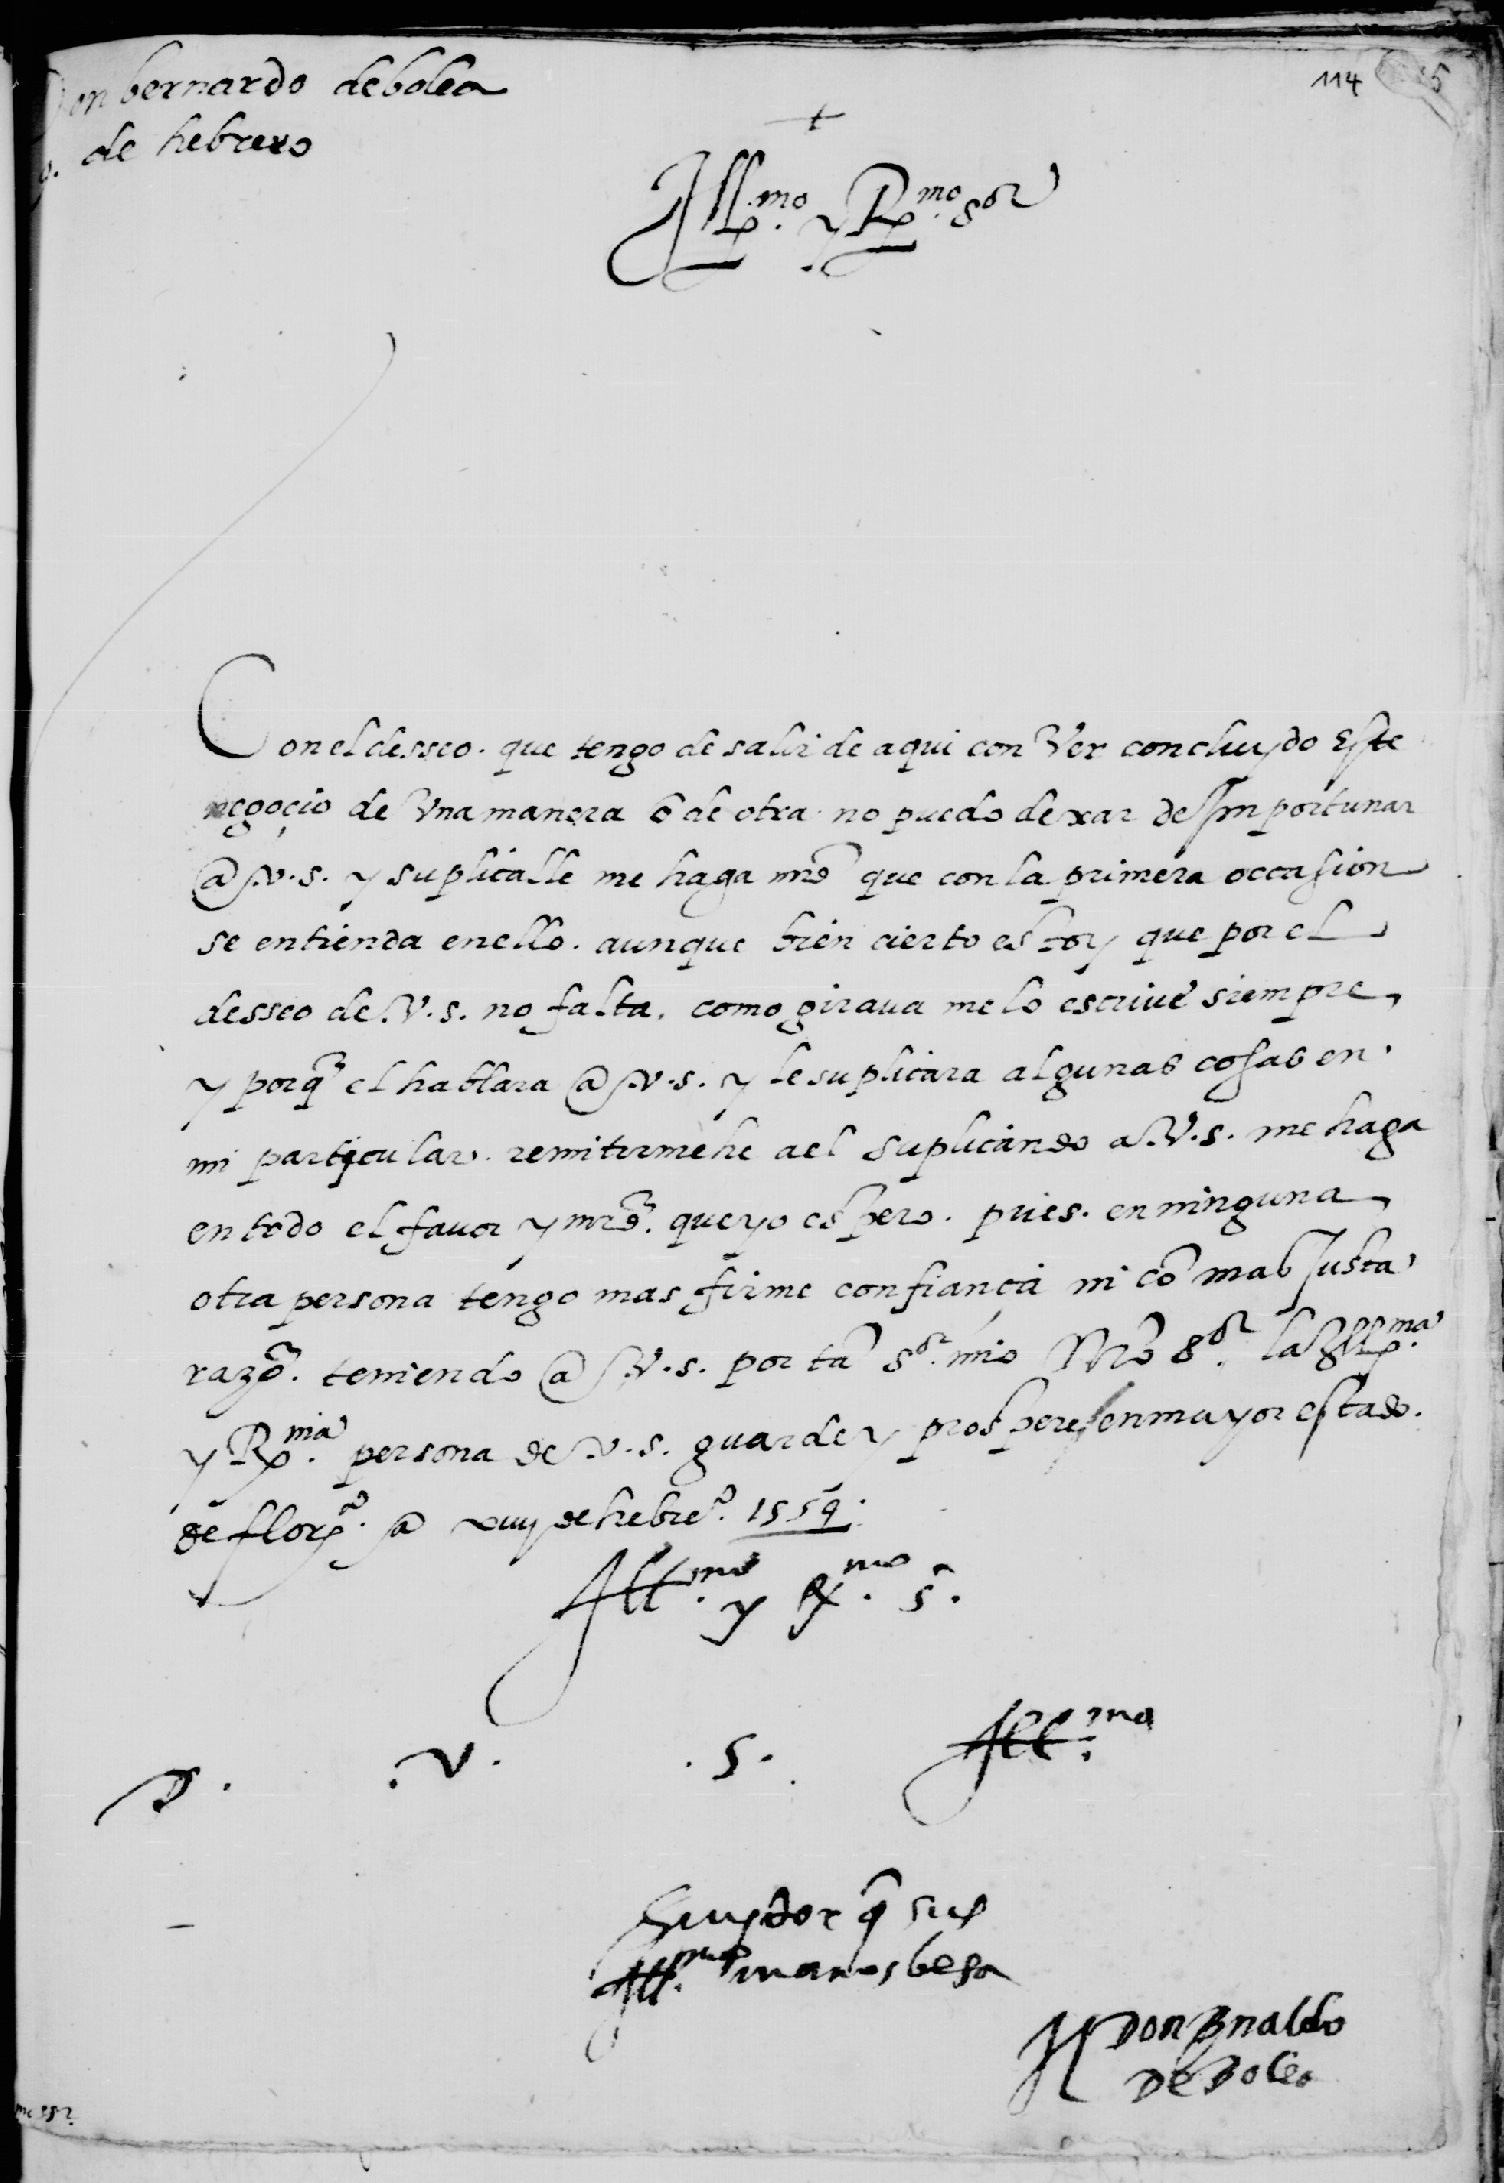 Don bernardo de bolea
de hebrero
114
+
Illmo y Rmo sor
Con el desseo. que tengo de salir de aqui con Ver concluydo Este
negoçio de Vna manera o de otra no puedo dexar de Importunar
a V.S. y suplicalle me haga mrd que con la primera occasion
se entienda en ello. aunque bien cierto estoy que por el
desseo de V.S. no falta. como girava me lo escrive siempre
y porq el hablara a V.S. y le suplicara algunas cosas en
mi particular. remitirme he a el suplicando a V.S. me haga
en todo el favor y mrd. que yo espero. pues. en ninguna
otra persona tengo mas firme confiança ni cō mas Justa
razō. teniendo a V.S. por tā sor. mio Nro Sor. la Illma.
y Rma. persona de V.S. guarde y prospere en mayor estado.
de florª. a xiiij de hebrer. 1554.
Illmo. y Rmo. s.
D. V. S. Illma
Servydor q sus
Illmas manos besa
Don Bnaldo
De Bolea